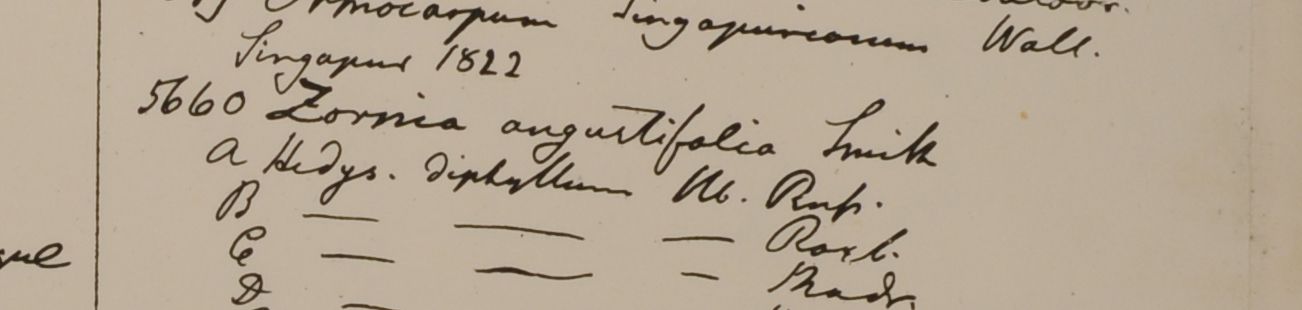 Ormocarpum Singapureanum Wall.
Singapur 1822
5660 Zornia angustifolia Smith
A Hedys. diphyllum Hb. Russ.
B — — — Roxb.
C — — — Madr.
D —